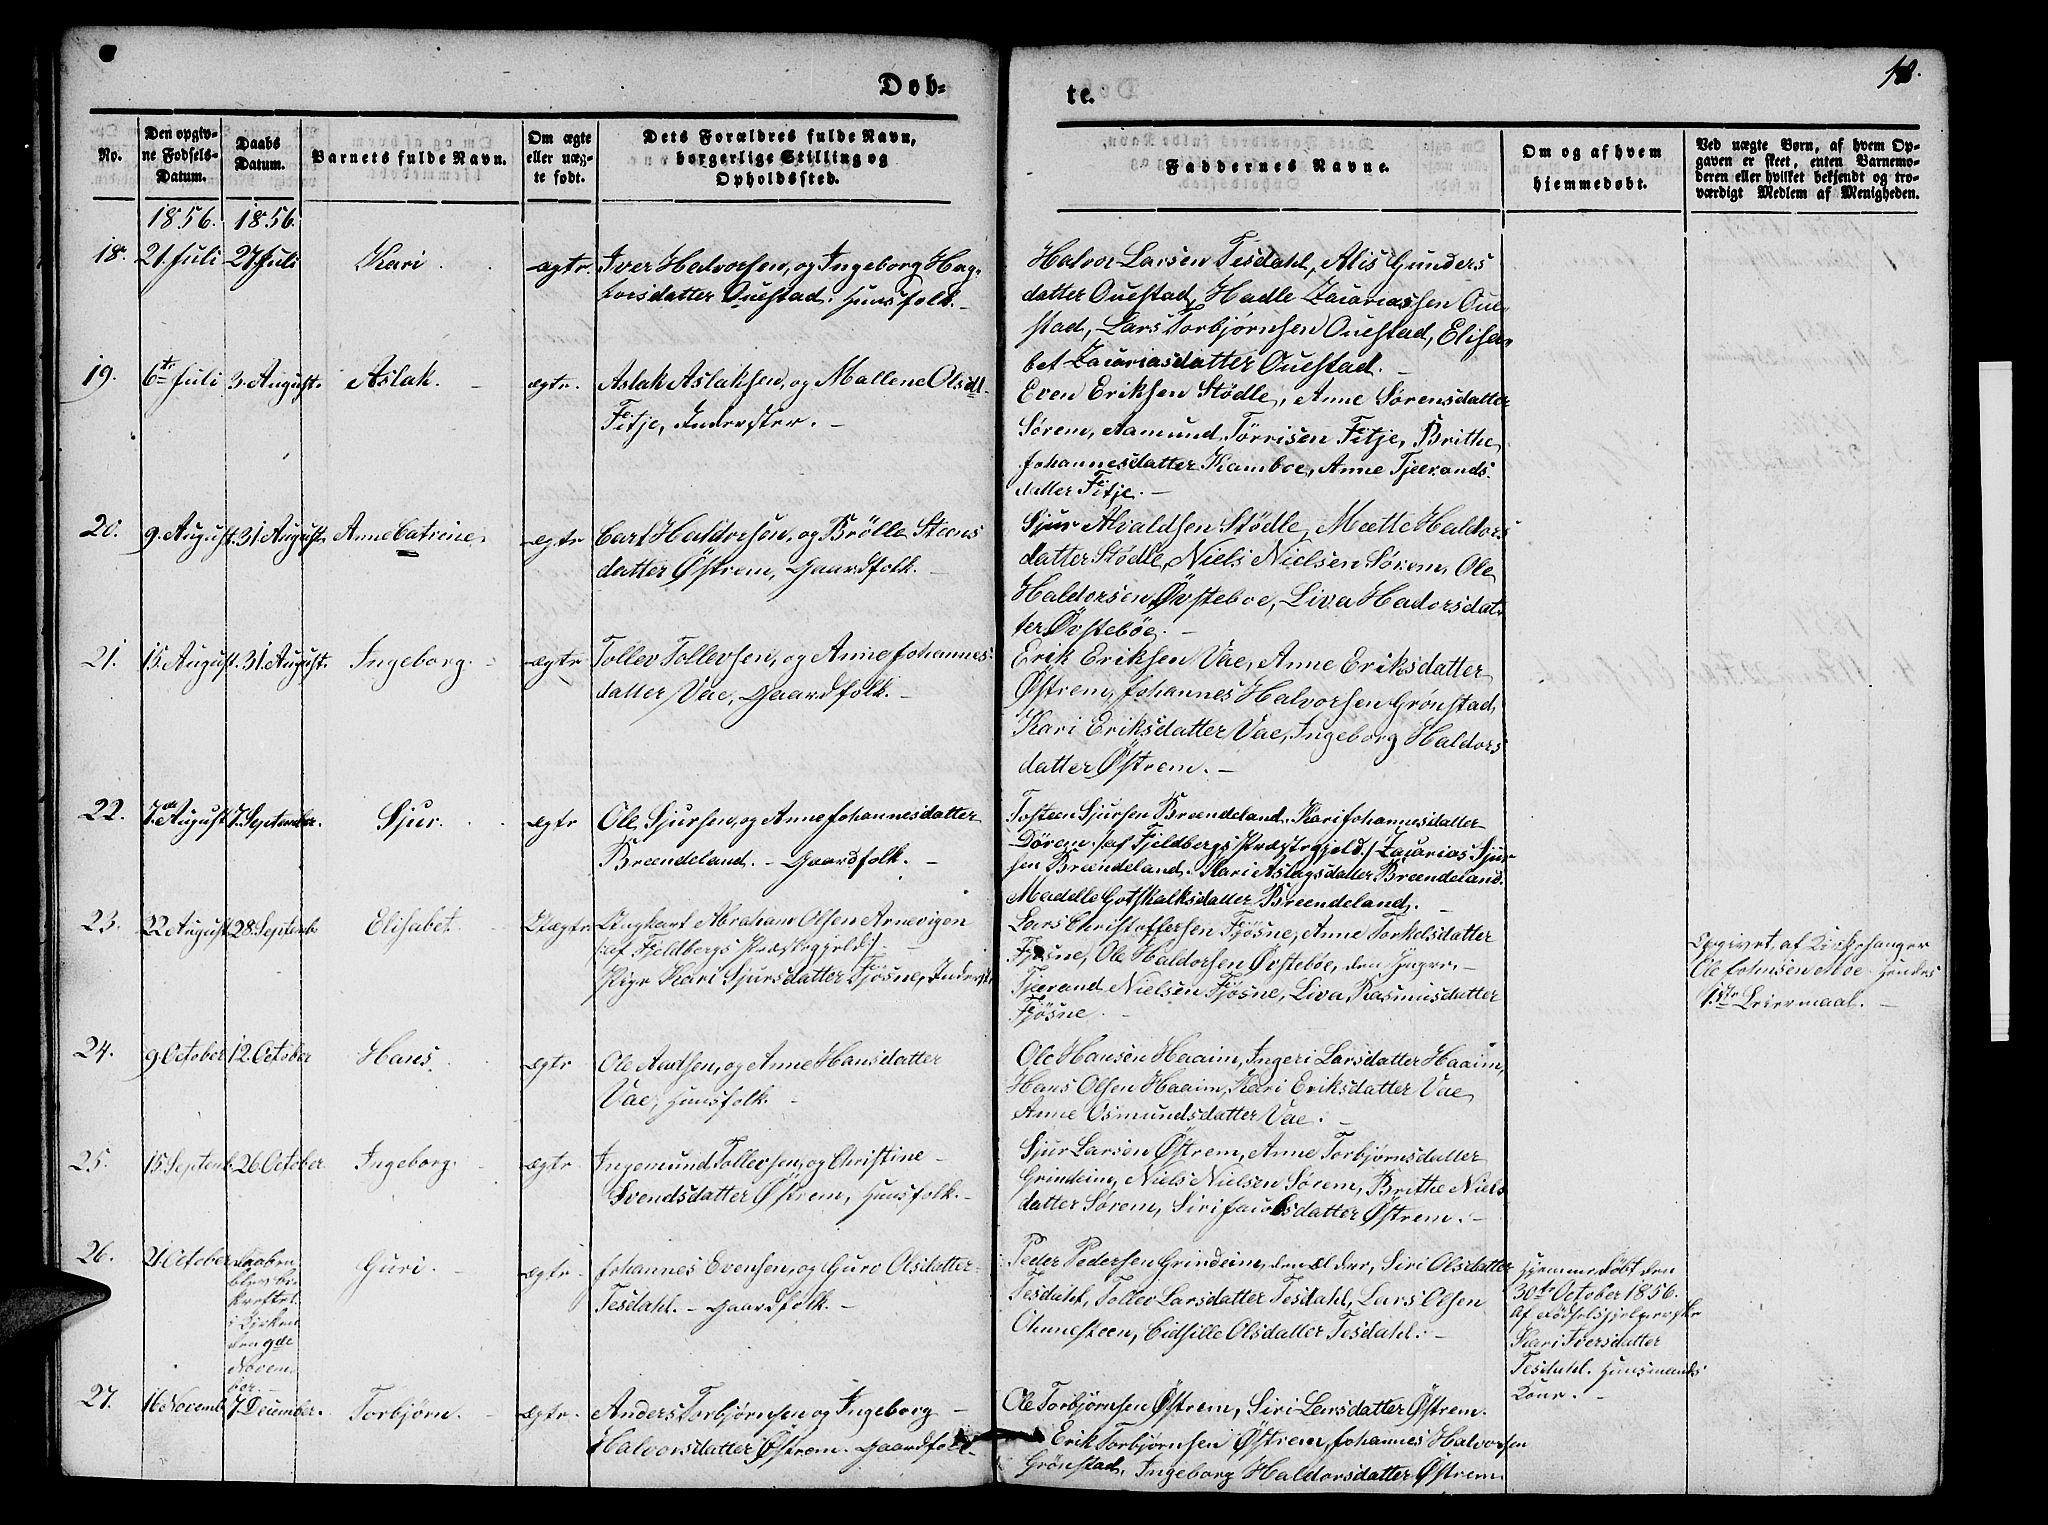 Døb-
te.
18.
No.
Den opgiv-
ne Fødsels-
Datum.
Daabs
Datum.
Barnets fulde Navn.
Om ægte
eller uæg-
te født.
Dets Forældres fulde Navn,
borgerlige Stilling og
Opholdssted.
Faddernes Navne.
Om og af hvem
hjemmedøbt.
Ved uægte Børn, af hvem Op-
gaven er skeet, enten Barnemo-
deren eller hvilket bekjendt og tro-
værdigt Medlem af Menigheden.
1856. 1856.
18. 21. Juli 27. Juli Kari. ægtr. Iver Halvorsen, og Ingeborg Hag-
borsdatter Ouestad. Huusfolk. -
Halvor Larsen Tesdahl, Alis Gunders
datter Ouestad, Hadle Zacariassen Oue-
stad, Lars Torbjørnsen Ouestad, Elisa-
bet Zacariasdatter Ouestad. -
19. 6te Juli 3. August. Aslak. - ægtr. Aslak Aslaksen, og Mallene Olsdt.
Fitje, Inderster. -
Even Eriksen Stødle, Anne Sørensdatter
Sørem, Aamund Tørrisen Fitje, Brithe
Johannesdatter Kamboe, Anne Tjerands-
datter Fitje. -
20. 9. August. 31 August. Anne Catrine. ægtr Carl Haldorsen, og Brölle Steens
datter Østrem, Gaardfolk. -
Sjur Alvaldsen Stødle, Mætte Haldors
datter Stødle, Niels Nielsen Sørem, Ole
Haldorsen Øvsteboe, Liva Hadorsdat-
ter Øvstebøe. -
21. 15. August. 31. August. Ingeborg. - ægtr Tollev Tollevsen, og Anne Johannes-
datter Vae, Gaardfolk. -
Erik Eriksen Vae, Anne Eriksdatter
Østrem, Johannes Halvorsen Grønstad,
Kari Eriksdatter Vae, Ingeborg Haldors
datter Østrem. -
22. 7de August 7. September. Sjur. ægtr Ole Sjursen, og Anne Johannesdatter
Brændeland. - Gaardfolk. -
Tosteen Sjursen Brændeland. Kari Johannesdatter
Dörem /af Fjeldbergs Præstegjeld./ Zacarias Sjur-
sen Brændeland. Kari Aslagsdatter Brændeland.
Madelle Gotskalksdatter Brændeland. -
23. 22 August 28. Septemb Elisabet. Uægtr. Ungkarl Abraham Olsen Arnevigen
/:af Fjeldbergs Præstegjeld/.
Pige Kari Sjursdatter Fjøsne, Inderst.
Lars Christoffersen Fjøsne, Anne Torkelsdatter
Fjøsne, Ole Haldorsen Øvstebøe, den Yngre. -
Tjærand Nielsen Fjøsne, Liva Rasmusdatter
Fjøsne. -
Opgivet af Kirkesanger
Ole Johnsen Moe. Hendes
1ste Leiermaal. -
24. 9. October 12. October Hans. ægtr Ole Amdsen, og Anne Hansdatter
Vae, Huusfolk. -
Ole Hansen Haaim, Ingeri Larsdatter Haaim,
Hans Olsen Haaim, Kari Eriksdatter Vae
Anne Osmundsdatter Vae. -
25. 15 Septemb. 26. October Ingeborg. - ægtr. Ingemund Tollevsen, og Christine -
Svendsdatter Østrem, Huusfolk. -
Sjur Larsen Østrem, Anne Torbjørnsdatter
Grindeim, Niels Nielsen Sørem, Brithe Niels
datter Sørem, Siri Jacobsdatter Østrem. -
26. 21 October Daaben
blev be-
kreftet
i Kirken
den 9de
Novem-
ber. -
Guri. - ægtr. Johannes Evensen, og Guro Olsdatter
Tesdahl. - Gaardfolk. -
Peder Pedersen Grindeim, den Ældre, Siri Olsdatter
Tesdahl, Tollev Larsdatter Tesdahl, Lars Olsen
Ohnesteen, Cidsille Olsdatter Tesdahl. -
Hjemmedøbt den
30te October 1856.
af Fødselshjelperske
Kari Iversdatter
Tesdahl. Huusmands
Kone. -
27. 16 Novemb. 7 December. Torbjørn. - ægtr. Anders Torbjørnsen og Ingeborg -
Halvorsdatter Østrem. Gaardfolk.
Ole Torbjørnsen Østrem, Siri Larsdatter Østrem.
Erik Torbjørnsen Østrem, Johannes Halvorsen
Grønstad, Ingeborg Haldorsdatter Østrem